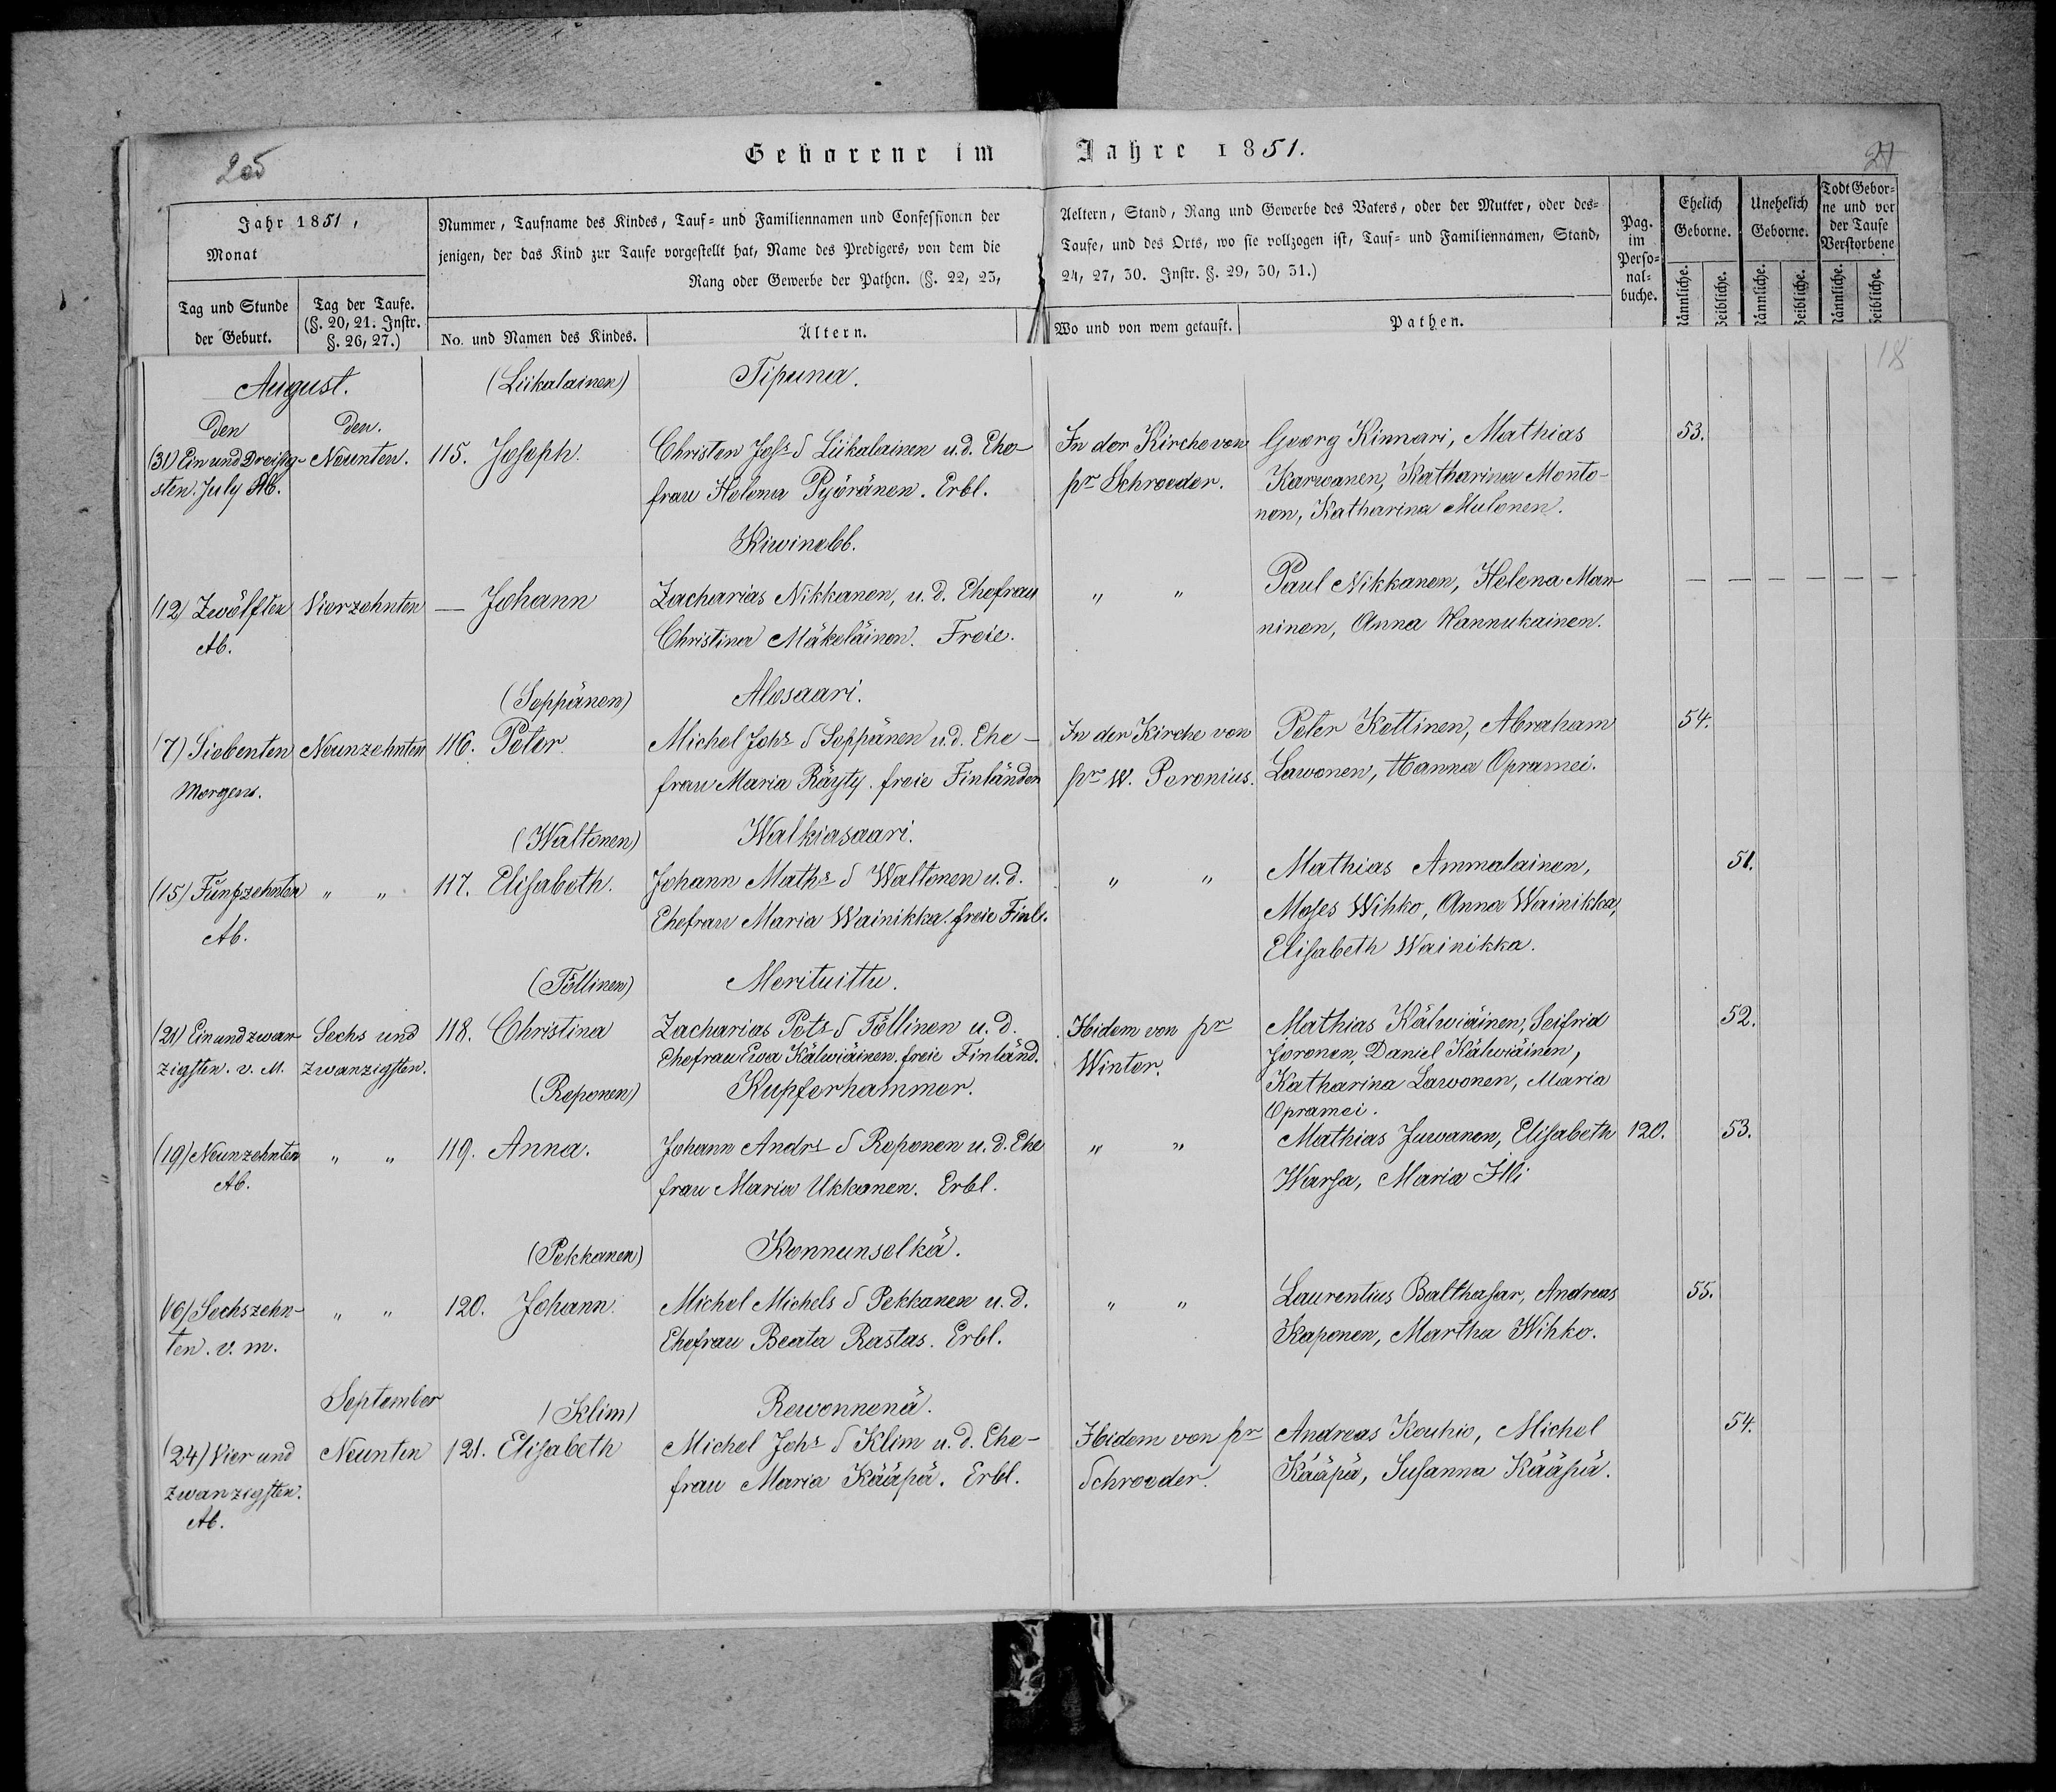 205
Geborene im Jahre 1851.
21
Jahr 1851,
Monat
Tag und Stunde
der Geburt.
Tag der Taufe.
(§. 20, 21. Instr.
§. 26, 27.)
Nummer, Taufname des Kindes, Tauf= und Familiennamen und Confessionen der
jenigen, der das Kind zur Taufe vorgestellt hat, Name des Predigers, von dem die
Rang oder Gewerbe der Pathen. (§. 22, 23,
No. und Namen des Kindes.
Ältern.
Aeltern, Stand, Rang und Gewerbe des Vaters, oder der Mutter, oder des=
Taufe, und des Orts, wo sie vollzogen ist, Tauf= und Familiennamen, Stand,
24, 27, 30. Instr. §. 29, 30, 31.)
Wo und von wem getauft.
Pathen.
Pag.
im
Perso=
nal=
buche.
Ehelich
Geborne.
Unehelich
Geborne.
Todt Gebor=
ne und vor
der Taufe
Verstorbene
18
August.
(Liikalainen)
Tipuna.
Den
den.
(31) Ein und Dreißig-
sten. July Ab.
Neunten.
115. Joseph.
Christen Johs S Liikalainen u. d. Ehe-
frau Helena Pyöränen. Erbl.
In der Kirche von
pr Schroeder.
Georg Kinnari, Mathias
Karwanen, Katharina Monto-
nen, Katharina Mulonen.
53.
Kiwinebb.
(12) Zwölften
Ab.
Vierzehnten
— Johann
Zacharias Nikkanen, u. d. Ehefrau
Christina Mäkeläinen. Freie.
" "
Paul Nikkanen, Helena Man-
ninen, Anna Hannukainen.
— — — — — —
(Seppänen)
Alosaari.
(7) Siebenten
Morgens.
Neunzehnten
116. Peter.
Michel Johs S Seppänen u. d. Ehe-
frau Maria Räyty. freie Finländer
In der Kirche von
pr W. Poronius.
Peter Kettinen, Abraham
Lawonen, Hanna Opramei.
54.
(Waltonen)
Walkiasaari.
(15) Fünfzehnten
Ab.
" "
117. Elisabeth.
Johann Maths S Waltonen u. d.
Ehefrau Maria Wainikka. freie Finl.
" "
Mathias Ammalainen,
Moses Wihko, Anna Wainikka,
Elisabeth Wainikka.
51.
(Töllinen)
Merituittu.
(21) Ein und zwan-
zigsten. v. M.
Sechs und
zwanzigsten.
118. Christina
Zacharias Pets S Töllinen u. d.
Ehefrau Ewa Kälwiäinen. freie Finländ.
Ibidem von pr
Winter.
Mathias Kälwiäinen, Seifrid
Joronen, Daniel Kälwiäinen,
Katharina Lawonen, Maria
Opramei.
52.
(Reponen)
Kupferhammer.
(19) Neunzehnten
Ab.
" "
119. Anna.
Johann Andrs S Reponen u. d. Ehe
frau Maria Ukkonen. Erbl.
" "
Mathias Juwanen, Elisabeth
Warsa, Maria Illi
120.
53.
(Pekkanen)
Konnunselkä.
(16) Sechszehn-
ten. v. m.
" "
120. Johann.
Michel Michels S Pekkanen u. d.
Ehefrau Beata Rastas. Erbl.
" "
Laurentius Balthasar, Andreas
Kaponen, Martha Wihko.
55.
September
(Klim)
Rewonnenä.
(24) Vier und
zwanzigsten.
Ab.
Neunten
121. Elisabeth
Michel Johs S Klim u. d. Ehe-
frau Maria Kääpä. Erbl.
Ibidem von pr
Schroeder.
Andreas Kouhio, Michel
Kääpä, Susanna Kääpä.
54.